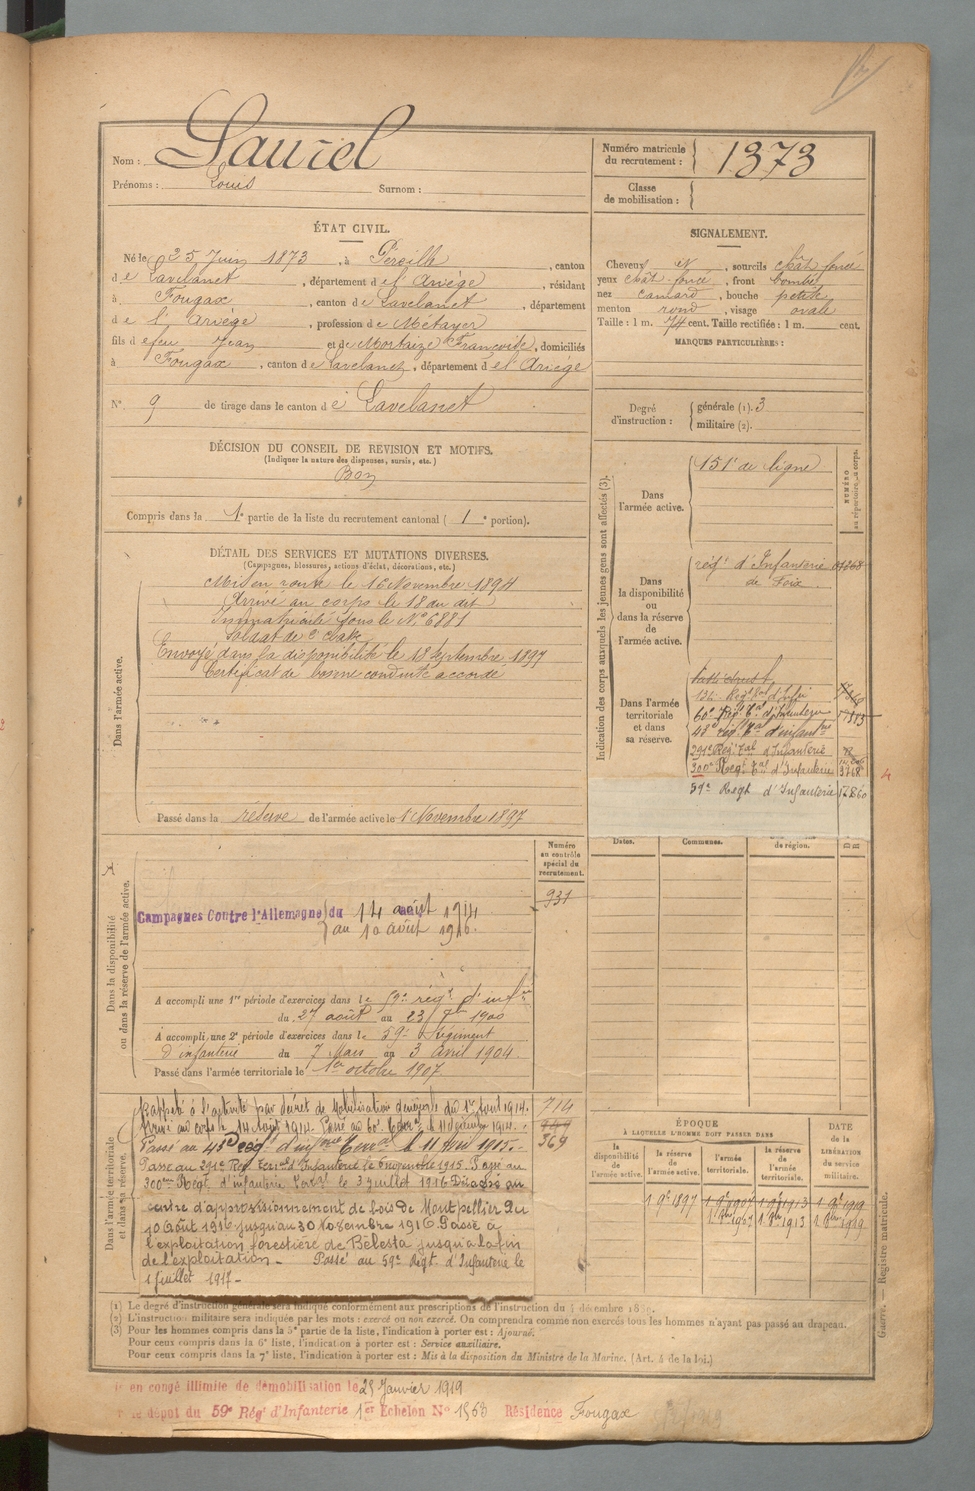 Nom : Laurel
Prénoms : Louis Surnom :
Numéro matricule du recrutement : 1373
Classe de mobilisation :
ÉTAT CIVIL.
Né le 25 Juin 1873, à Péreille, canton
de Lavelanet, département de l'Ariège, résidant
à Fougax, canton de Lavelanet, département
de l'Ariège, profession de Métayer
fils de feu Jean et de Mortaize Françoise, domiciliés
à Fougax, canton de Lavelanet, département de l'Ariège
N° 9 de tirage dans le canton de Lavelanet
SIGNALEMENT.
Cheveux et, sourcils chât. foncé
yeux chât. foncé, front bombé
nez camard, bouche petite
menton rond, visage ovale
Taille : 1 m. 74 cent. Taille rectifiée : 1 m. cent.
MARQUES PARTICULIÈRES :
Degré d'instruction : générale (1). 3
militaire (2).
DÉCISION DU CONSEIL DE REVISION ET MOTIFS.
(Indiquer la nature des dispenses, sursis, etc.)
Bon
Compris dans la 1e partie de la liste du recrutement cantonal ( 1e portion).
DÉTAIL DES SERVICES ET MUTATIONS DIVERSES.
(Campagnes, blessures, actions d'éclat, décorations, etc.)
Dans l'armée active.
Mis en route le 16 Novembre 1894
Arrivé au corps le 18 du dit
Immatriculé sous le N° 6881
Soldat de 2e classe
Envoyé dans la disponibilité le 18 Septembre 1897
Certificat de bonne conduite accordé
Passé dans la réserve de l'armée active le 1 Novembre 1897
Indication des corps auxquels les jeunes gens sont affectés (3).
NUMÉRO au répertoire du corps.
Dans l'armée active.
151e de ligne
Dans la disponibilité ou dans la réserve de l'armée active.
régt d'Infanterie
de Foix
Dans l'armée territoriale et dans sa réserve.
136 Régt Tal d'Infie
60e Régt Tal d'Infanterie
48e rég. Tal d'infantrie
291e Régt Tal d'Infanterie
300e Regt Tal d'Infanterie 3768
59e Regt d'Infanterie 12860
Dates. Communes. de région. D R
Dans la disponibilité ou dans la réserve de l'armée active.
Numéro au contrôle spécial du recrutement.
931
Campagnes Contre l'Allemagne du 14 août 1914
au 10 août 1916.
A accompli une 1re période d'exercices dans le 9e régt d'infrie
du 27 août au 23 7bre 1900
A accompli une 2e période d'exercices dans le 59e Régiment
d'infanterie du 7 Mars au 3 Avril 1904.
Passé dans l'armée territoriale le 1er octobre 1907.
Dans l'armée territoriale et dans sa réserve.
Rappelé à l'activité par décret de Mobilisation générale du 1er Août 1914.
Arrivé au corps le 14 Août 1914. Passé au 60e Terral le 11 décembre 1914.
Passé au 48e régt d'infrie Terral le 11
Passé au 291e Rég. Terral d'Infanterie le 1915. Passé au
300e Régt d'infanterie Terral le 3 juillet 1916 Détaché au
centre d'approvisionnement de bois de Montpellier du
10 Août 1916 jusqu'au 30 Novembre 1916. Passé à
l'exploitation forestière de Bélesta jusqu'à la fin
de l'exploitation. _ Passé au 59e Régt d'Infanterie le
1 juillet 1917 _
714
949
369
ÉPOQUE
À LAQUELLE L'HOMME DOIT PASSER DANS
la disponibilité de l'armée active.
la réserve de l'armée active.
l'armée territoriale.
la réserve de l'armée territoriale.
DATE de la LIBÉRATION du service militaire.
1 9e 1897 1 9e 1907 1 9e 1913 1 9e 1919
1 8bre 1907 1 8bre 1913 1 8bre 1919
(1) Le degré d'instruction générale sera indiqué conformément aux prescriptions de l'instruction du 4 décembre 1889.
(2) L'instruction militaire sera indiquée par les mots : exercé ou non exercé. On comprendra comme non exercés tous les hommes n'ayant pas passé au drapeau.
(3) Pour les hommes compris dans la 5e partie de la liste, l'indication à porter est : Ajourné.
Pour ceux compris dans la 6e liste, l'indication à porter est : Service auxiliaire.
Pour ceux compris dans la 7e liste, l'indication à porter est : Mis à la disposition du Ministre de la Marine. (Art. 4 de la loi.)
Guerre. — Registre matricule.
en congé illimité de démobilisation le 25 Janvier 1919
dépôt du 59e Régt d'Infanterie 1er Échelon N° 1568 Résidence Fougax